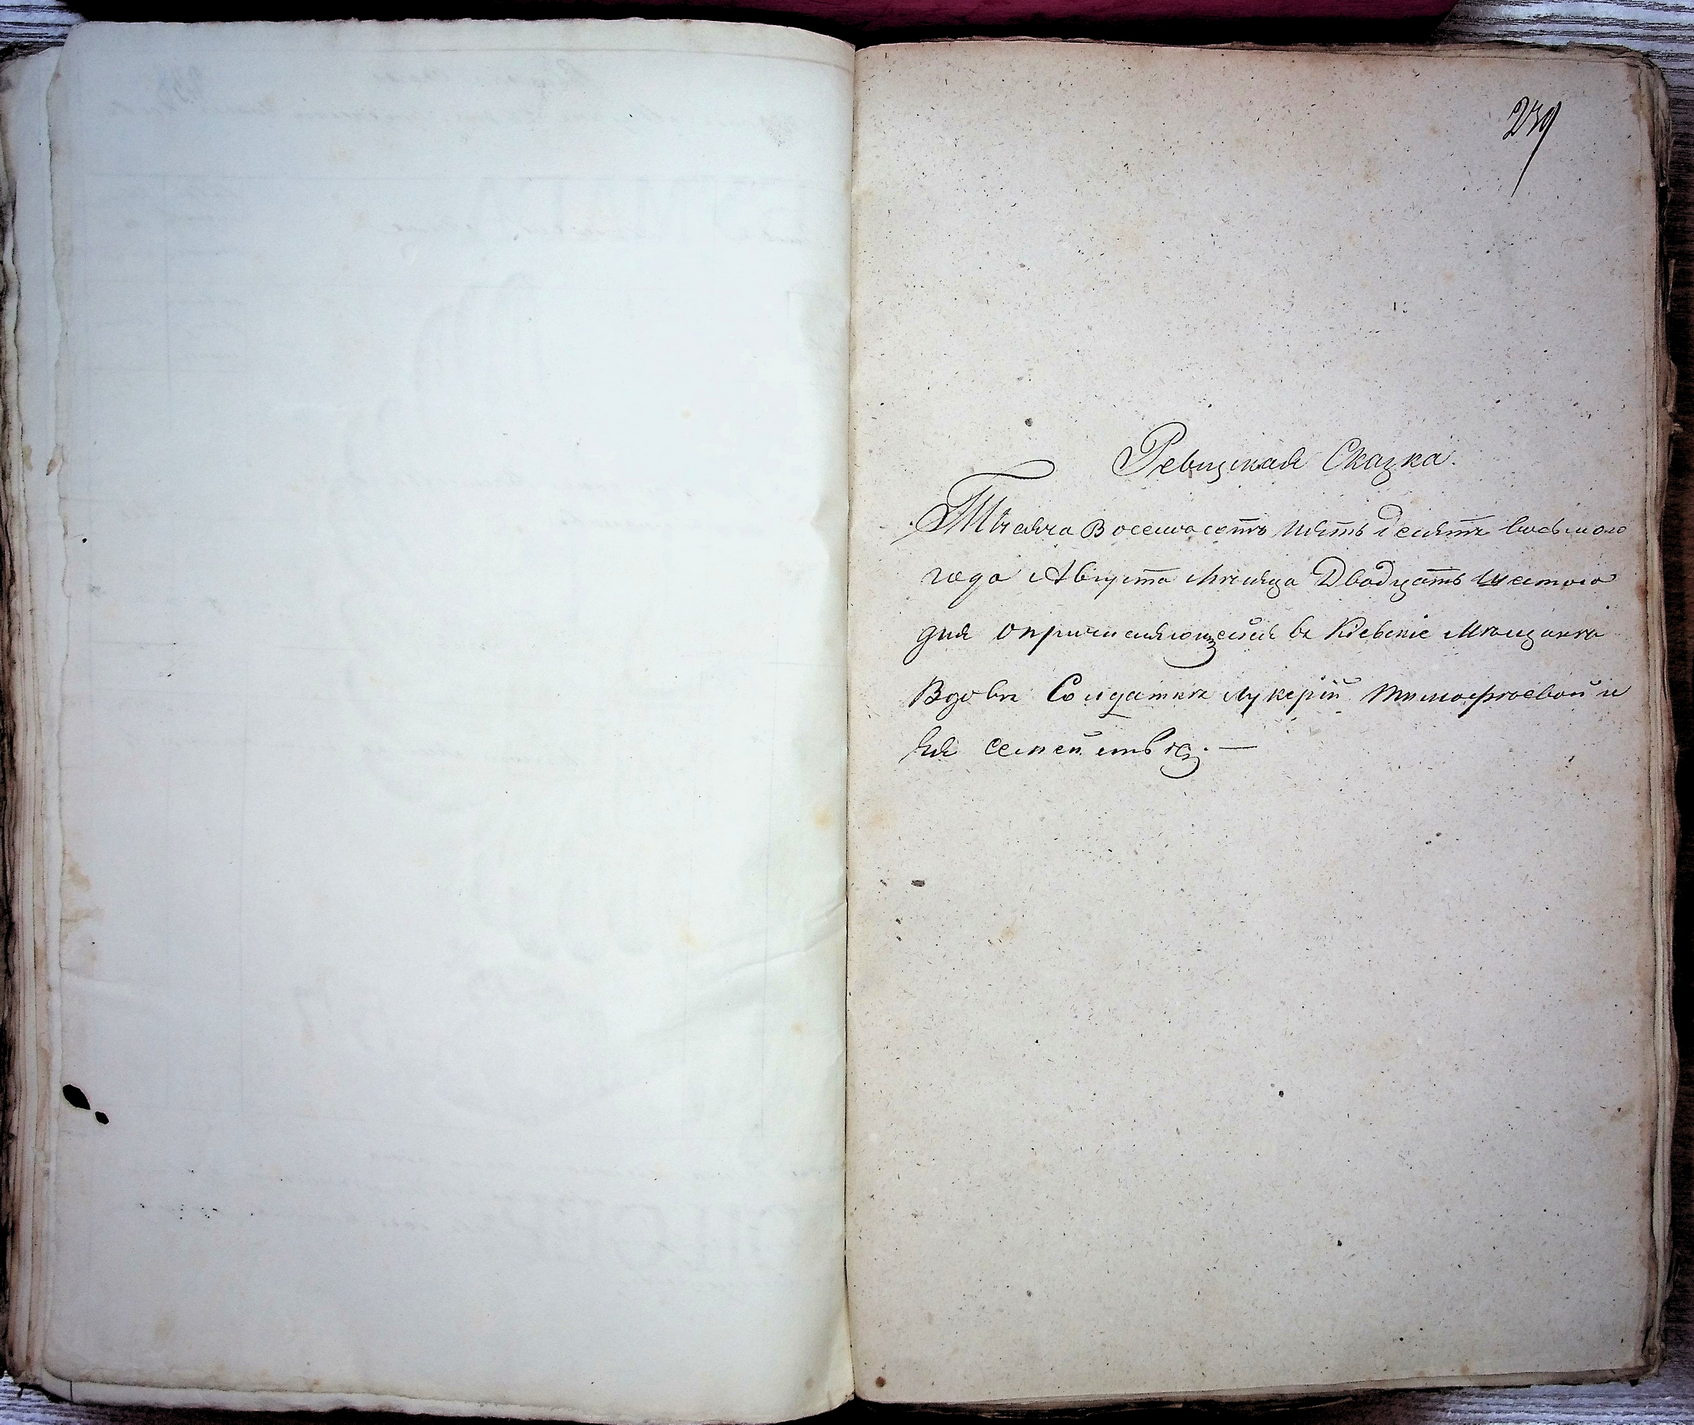 239
Ревизская Сказка.
Тысяча Восемьсотъ пятьдесятъ восьмого
года Августа мѣсяца Двадцать шестого
дня о причисляющейся въ Кіевскіе Мѣщанки
Вдовѣ Солдаткѣ Лукеріи Тимофѣевой и
Ея семействѣ. —